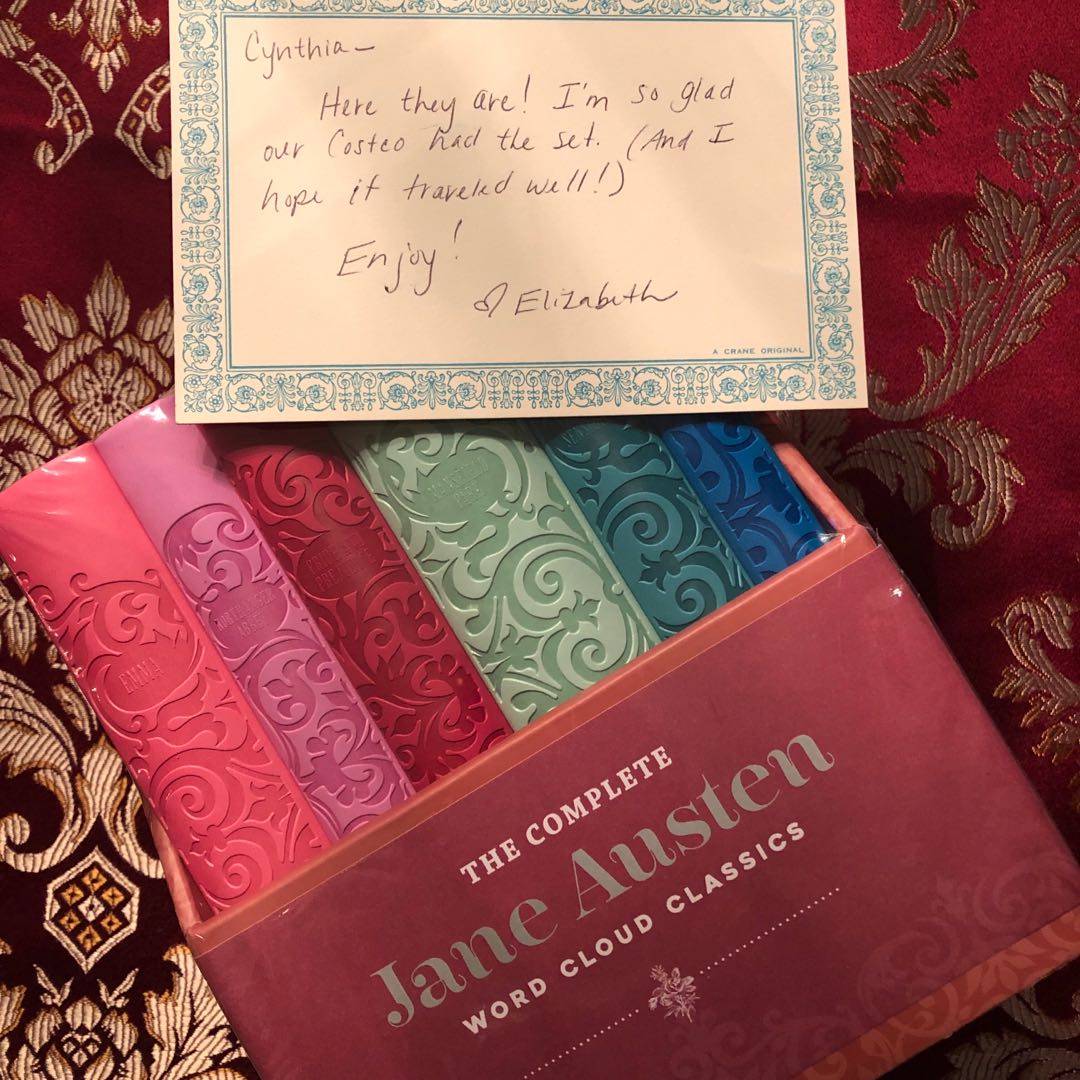 Cynthia—
Here they are! I'm so glad
our Costco had the set. (And I
hope it traveled well!)
Enjoy!
Elizabeth
A CRANE ORIGINAL
EMMA
NORTHANGER
ABBEY
PRIDE AND
PREJUDICE
MANSFIELD
PARK
THE COMPLETE
Jane Austen
WORD CLOUD CLASSICS